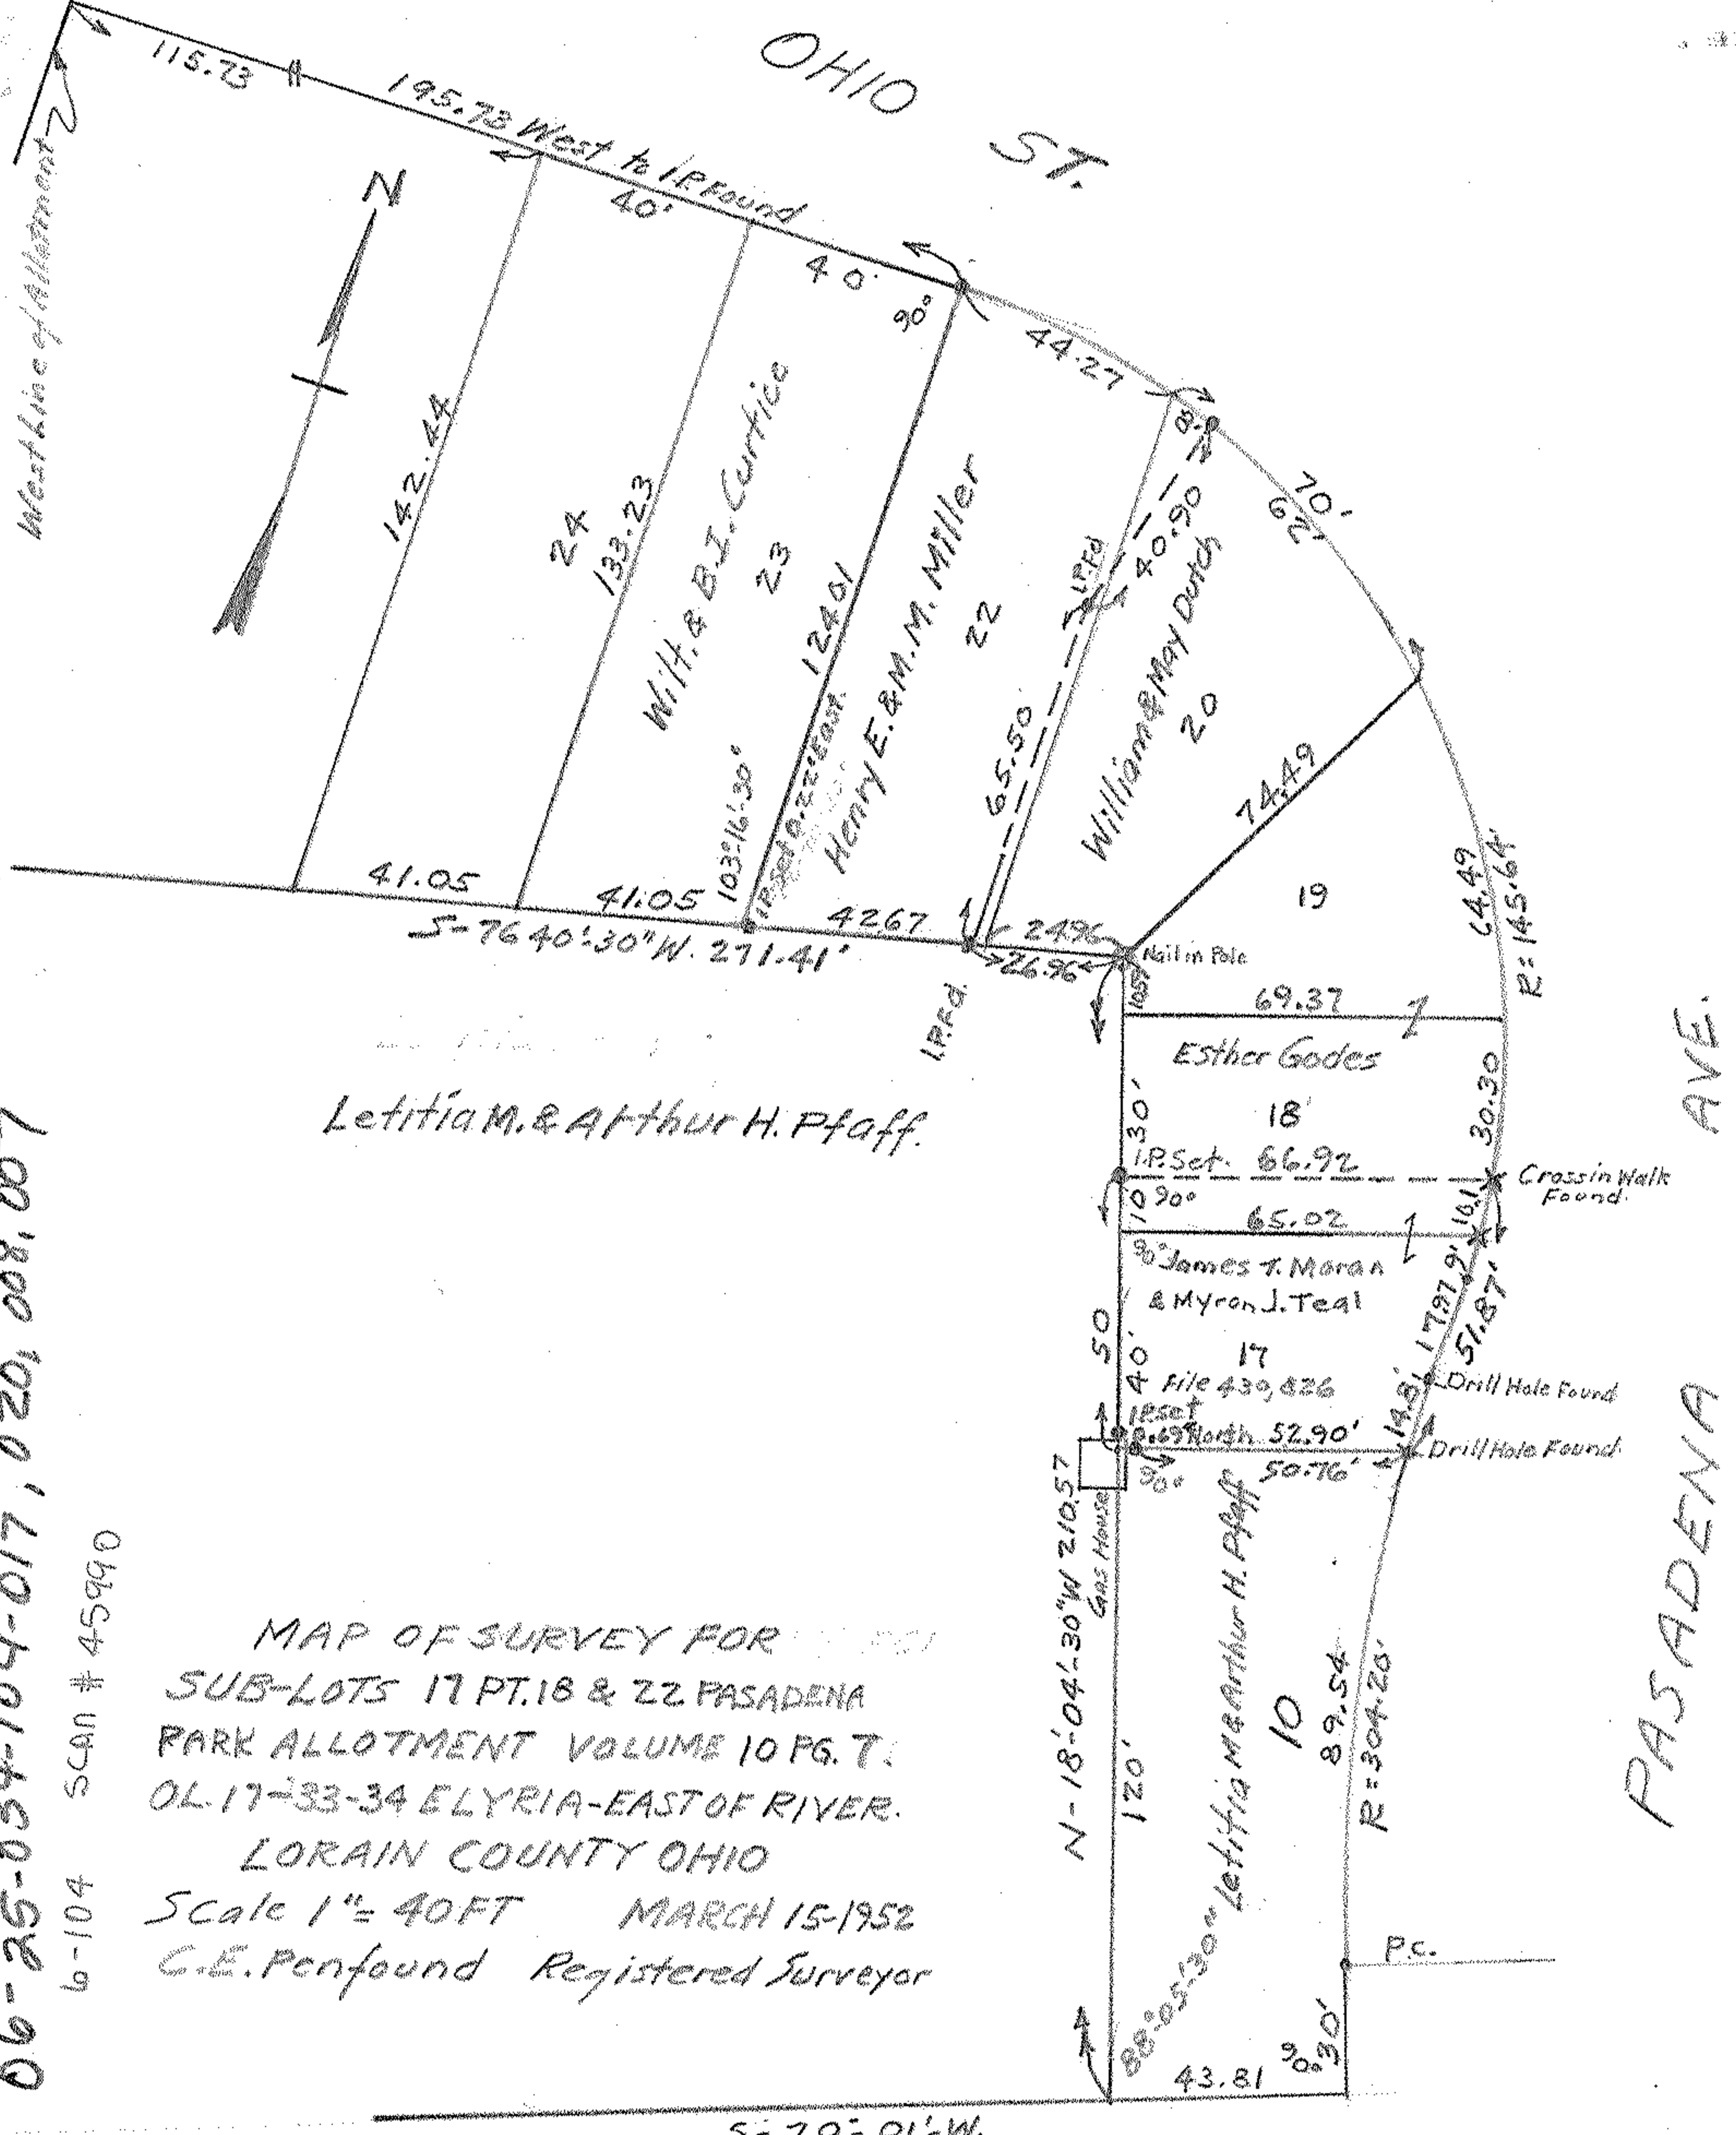 OHIO ST.
115.73
195.73 West to I.P. Found
40'
40'
90°
West Line of Allotment
N
142.44
24
133.23
Wilt. & B.I. Curtice
23
124.01
Henry E. & M. M. Miller
22
44.27
I.P.Fd
40.90
William & May Dutch
20
62
70'
65.50
74.49
19
64.49
R=145.64'
103°-16'-30"
I.P. set 0.22' East.
41.05
41.05
42.67
24.96
26.96
S-76 40'-30" W. 271.41'
I.P.Fd.
Nail in Pole
10.57
69.37
Esther Godes
18
30'
30.30
I.P. Set. 66.92
Cross in Walk
Found.
10
90°
65.02
10.1
90°
James T. Moran
& Myron J. Teal
17
File 430,826
50
40'
9.2'
17.97
51.87'
14.81'
Drill Hole Found
I.P. set
0.69' North 52.90'
Drill Hole Found.
50.76'
90°
Gas House
N-18°-04'-30" W 210.57
120'
Letitia M & Arthur H. Pfaff
10
89.54
R=304.20'
P.C.
30'
90°
43.81
88°-05'-30"
S-70°-01'-W.
Letitia M. & Arthur H. Pfaff.
PASADENA AVE.
MAP OF SURVEY FOR
SUB-LOTS 17 PT.18 & 22 PASADENA
PARK ALLOTMENT VOLUME 10 PG. 7.
OL. 17-33-34 ELYRIA-EAST OF RIVER.
LORAIN COUNTY OHIO
Scale 1"= 40FT MARCH 15-1952
C.E. Penfound Registered Surveyor
06-25-054-104-017, 020, 008, 007
6-104 SCAN # 45990